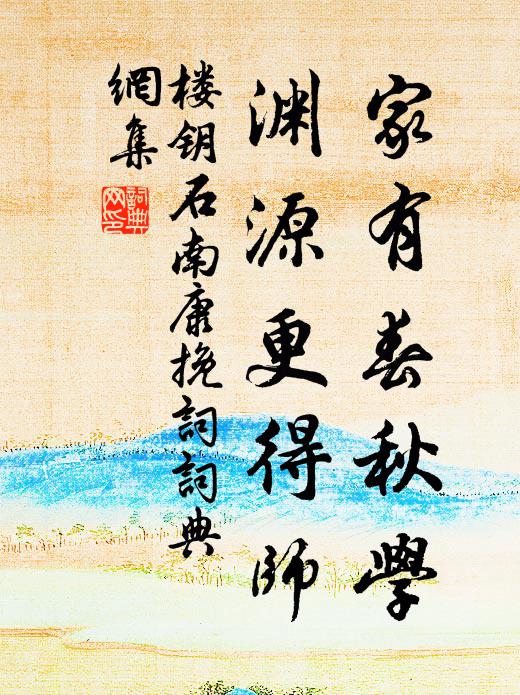 家有春秋學
渊源更得师
楼钥石南康挽詞詞典
網集
詞典
网印